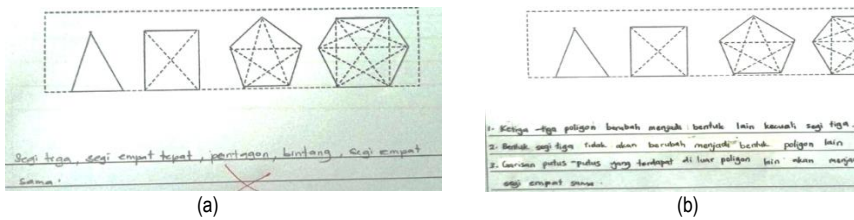 Segi tiga, segi empat tepat, pentagon, bintang, segi empat
sama.
(a)
1. Ketiga-tiga poligon berubah menjadi bentuk lain kecuali segi tiga.
2. Bentuk segi tiga tidak akan berubah menjadi bentuk poligon lain
3. Garisan putus-putus yang terdapat di luar poligon lain akan menja
segi empat sama.
(b)